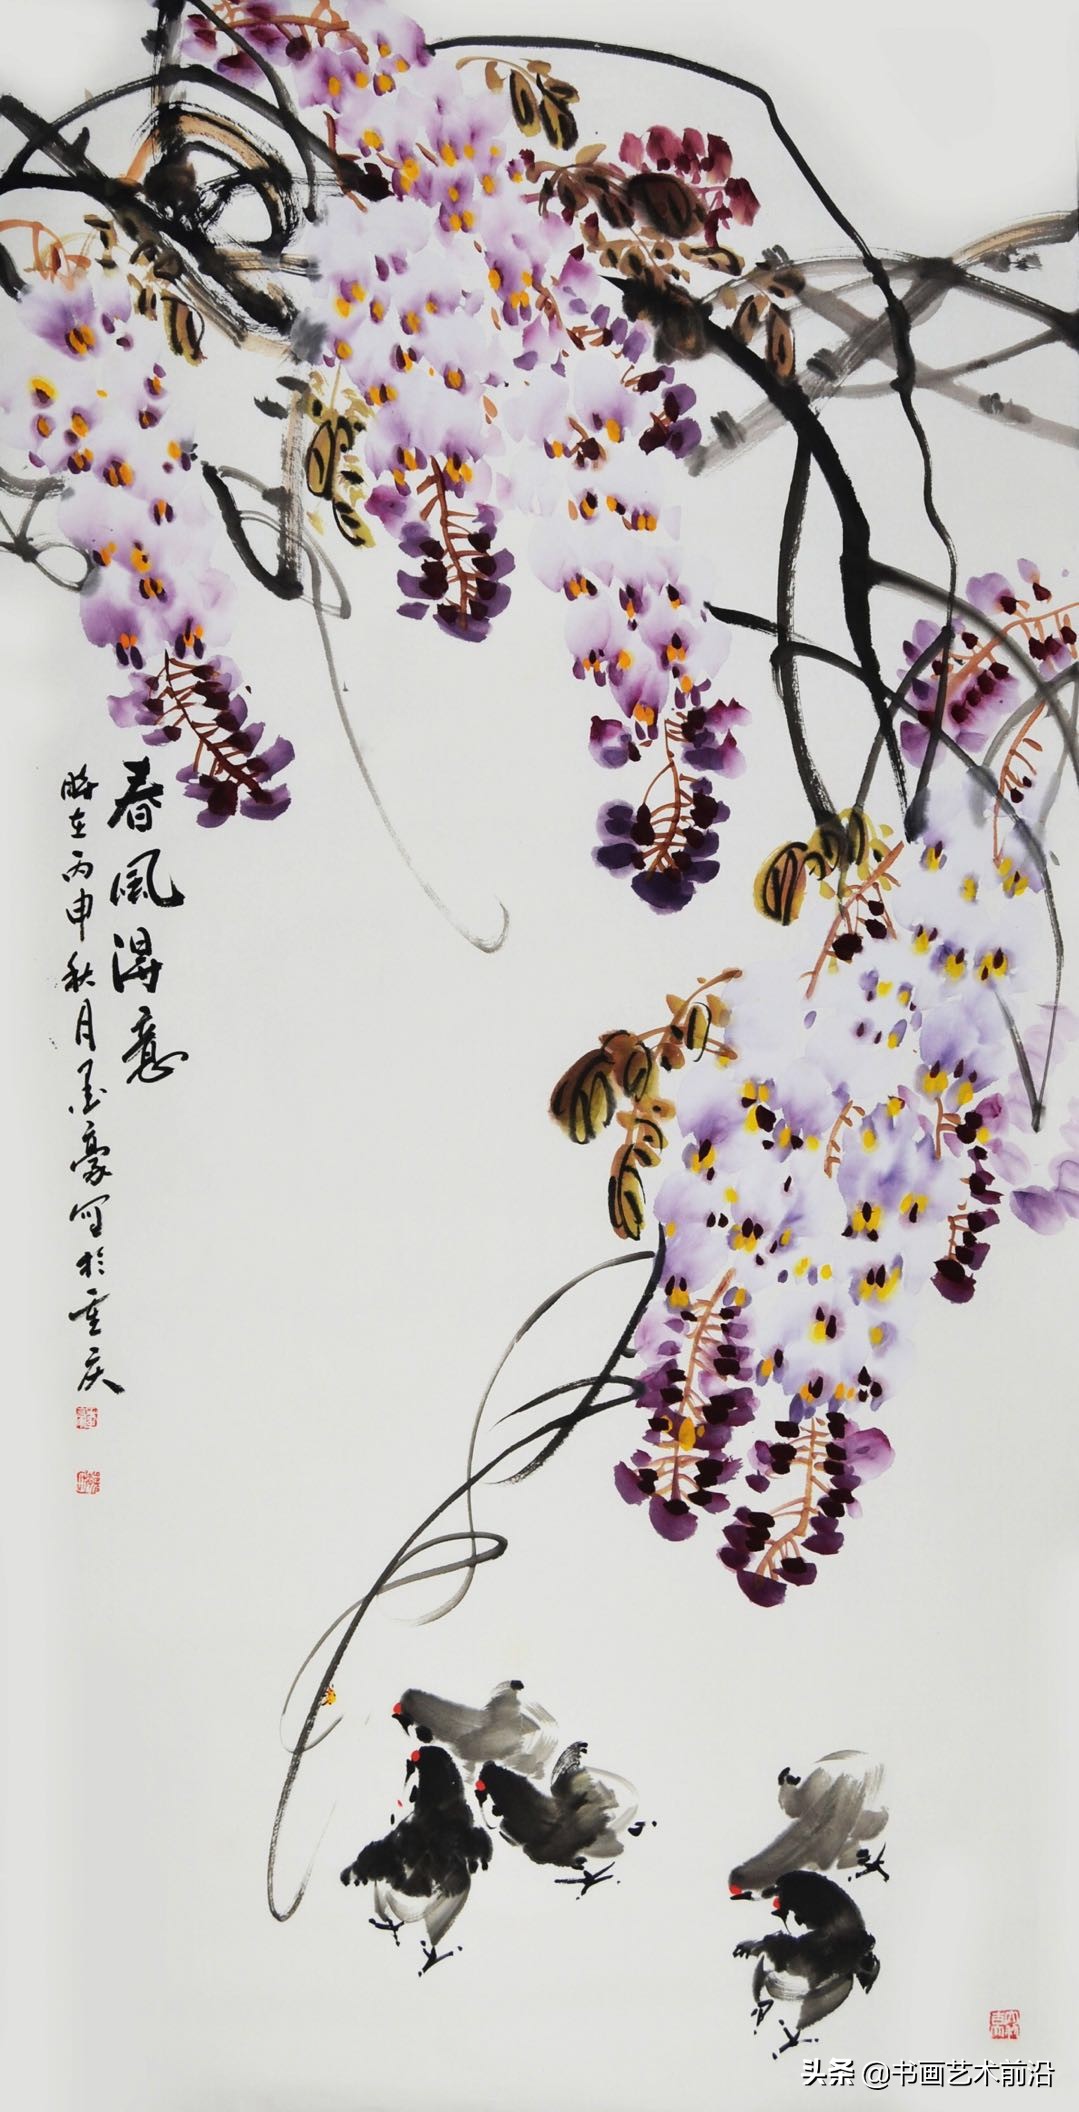 春风得意
时在丙申秋月墨豪写於重庆
头条 @书画艺术前沿